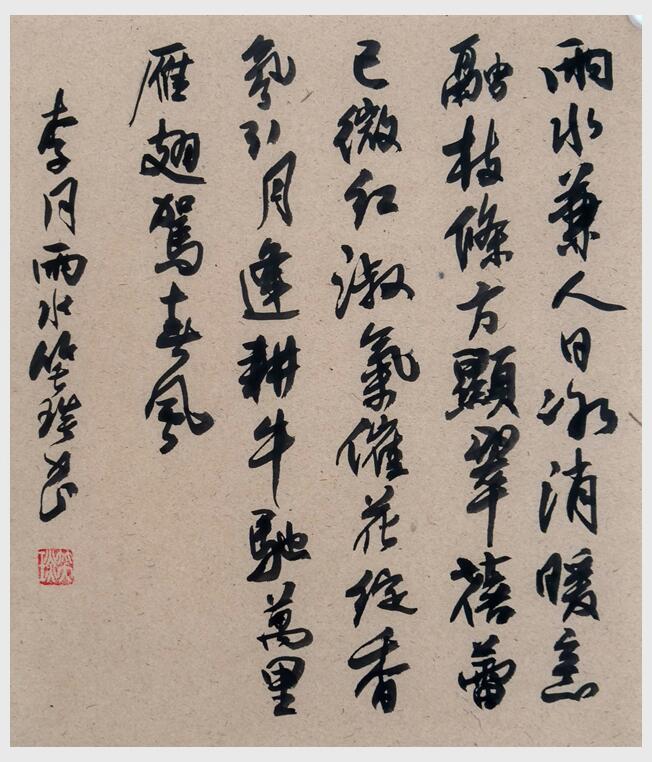 雨水兼人日冰消暖意
融枝條方顯翠蓓蕾
已微紅淑氣催花綻香
氛引月逢耕牛馳萬里
雁翅駕春風
雨水